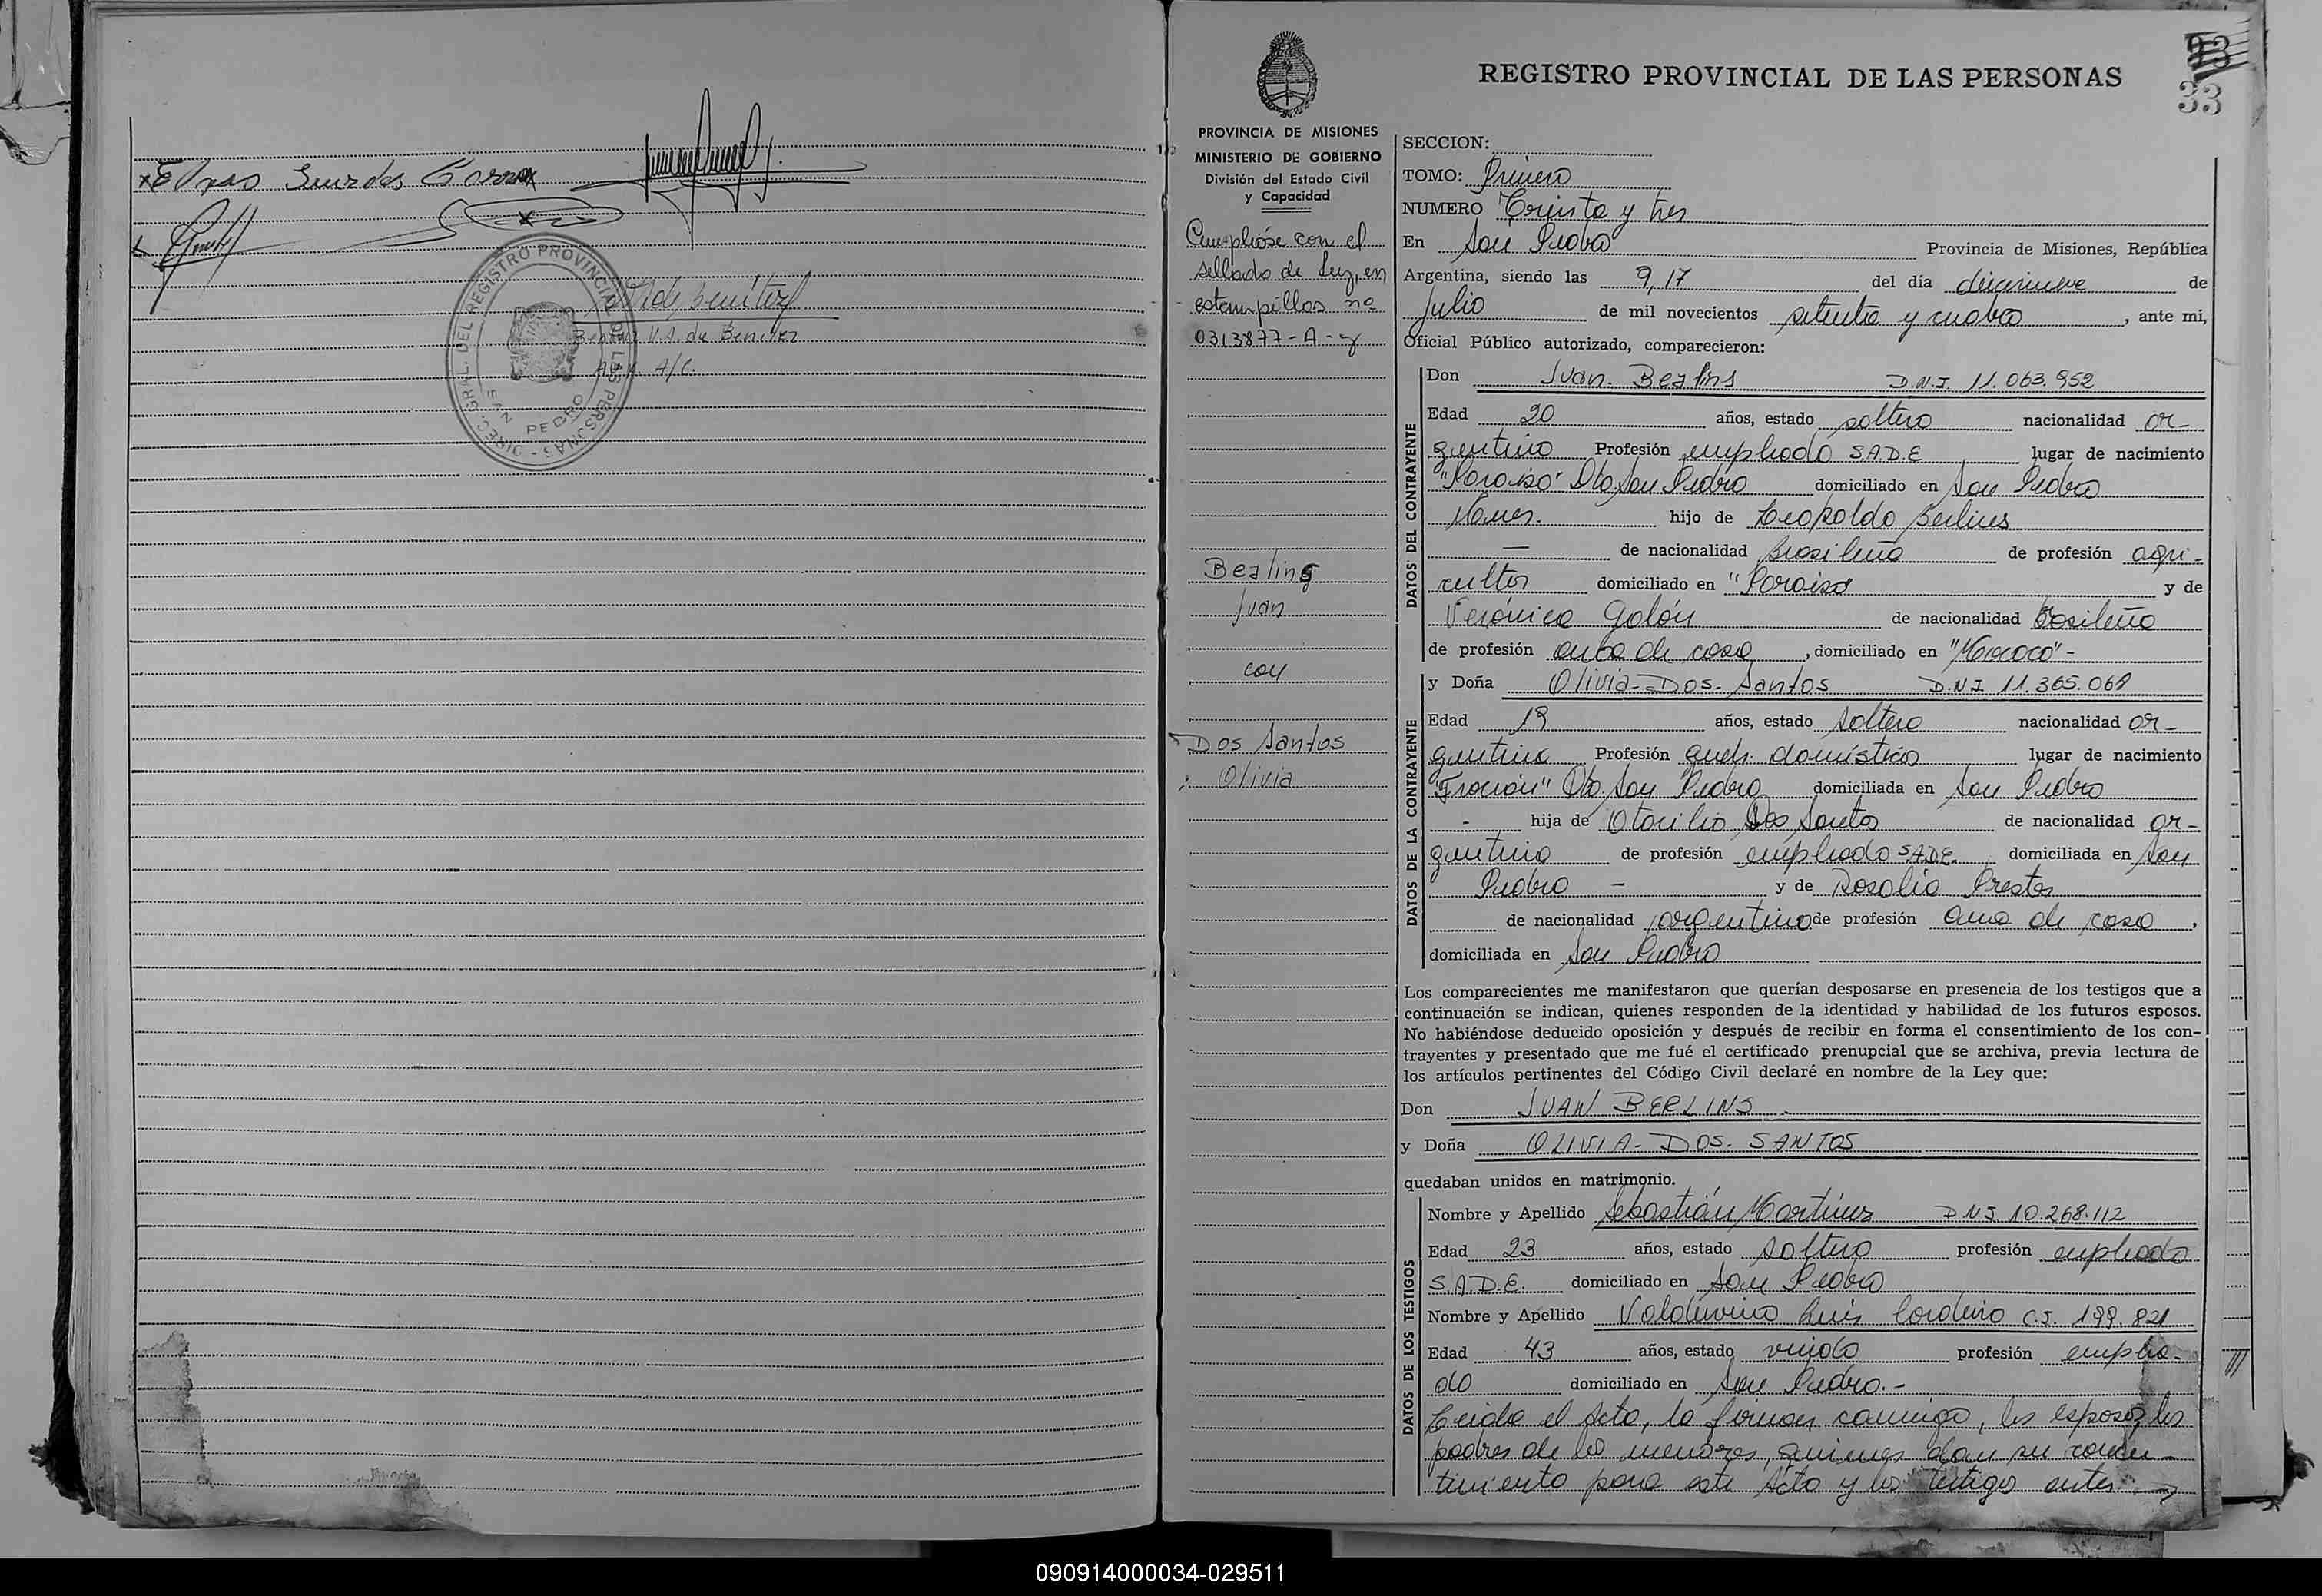 Benitez
V. A. de Benitez
A/C.
DIREC. GRAL. DEL REGISTRO PROVINCIAL DE LAS PERSONAS -
SAN PEDRO
33
33
REGISTRO PROVINCIAL DE LAS PERSONAS
PROVINCIA DE MISIONES
MINISTERIO DE GOBIERNO
División del Estado Civil
y Capacidad
Cumplióse con el
sellado de Ley, en
estampillas no
0313877-A-y
Bezlins
Juan
con
Dos Santos
Olivia
SECCION:
TOMO: Primero
NUMERO Treinta y tres
En San Pedro Provincia de Misiones, República
Argentina, siendo las 9,17 del día diecinueve de
Julio de mil novecientos setenta y cuatro, ante mi,
Oficial Público autorizado, comparecieron:
DATOS DEL CONTRAYENTE
Don Juan. Bezlins D.N.I. 11.063.952
Edad 20 años, estado soltero nacionalidad ar-
gentino Profesión empleado S.A.D.E lugar de nacimiento
"Paraiso" Dto. San Pedro domiciliado en San Pedro
Mnes. hijo de Leopoldo Berlins
— de nacionalidad brasileña de profesión agri-
cultor domiciliado en "Paraiso y de
Verónica Galón de nacionalidad brasileña
de profesión ama de casa, domiciliado en "Mococa"-
DATOS DE LA CONTRAYENTE
y Doña Olivia-Dos-Santos D.N.I 11.365.061
Edad 19 años, estado soltera nacionalidad ar-
gentina Profesión queh. domésticos lugar de nacimiento
"Fracrán" Dto. San Pedro domiciliada en San Pedro
- hija de Otacilio Dos Santos de nacionalidad ar-
gentina de profesión empleado S.A.D.E. domiciliada en San
Pedro - y de Rosalia Prestes
de nacionalidad argentina de profesión ama de casa,
domiciliada en San Pedro
Los comparecientes me manifestaron que querían desposarse en presencia de los testigos que a
continuación se indican, quienes responden de la identidad y habilidad de los futuros esposos.
No habiéndose deducido oposición y después de recibir en forma el consentimiento de los con-
trayentes y presentado que me fué el certificado prenupcial que se archiva, previa lectura de
los artículos pertinentes del Código Civil declaré en nombre de la Ley que:
Don JUAN BERLINS
y Doña OLIVIA-DOS-SANTOS
quedaban unidos en matrimonio.
DATOS DE LOS TESTIGOS
Nombre y Apellido Sebastián Martínez D.N.I. 10.268.112
Edad 23 años, estado soltero profesión empleado
S.A.D.E. domiciliado en San Pedro
Nombre y Apellido Valdivino Luis Cordeiro C.I. 199.821
Edad 43 años, estado viudo profesión emplea-
do domiciliado en San Pedro.-
Leida el Acta, la firman conmigo, los esposos, los
padres de los menores, quienes dan su consen-
timiento para este Acto y los testigos antes
090914000034-029511